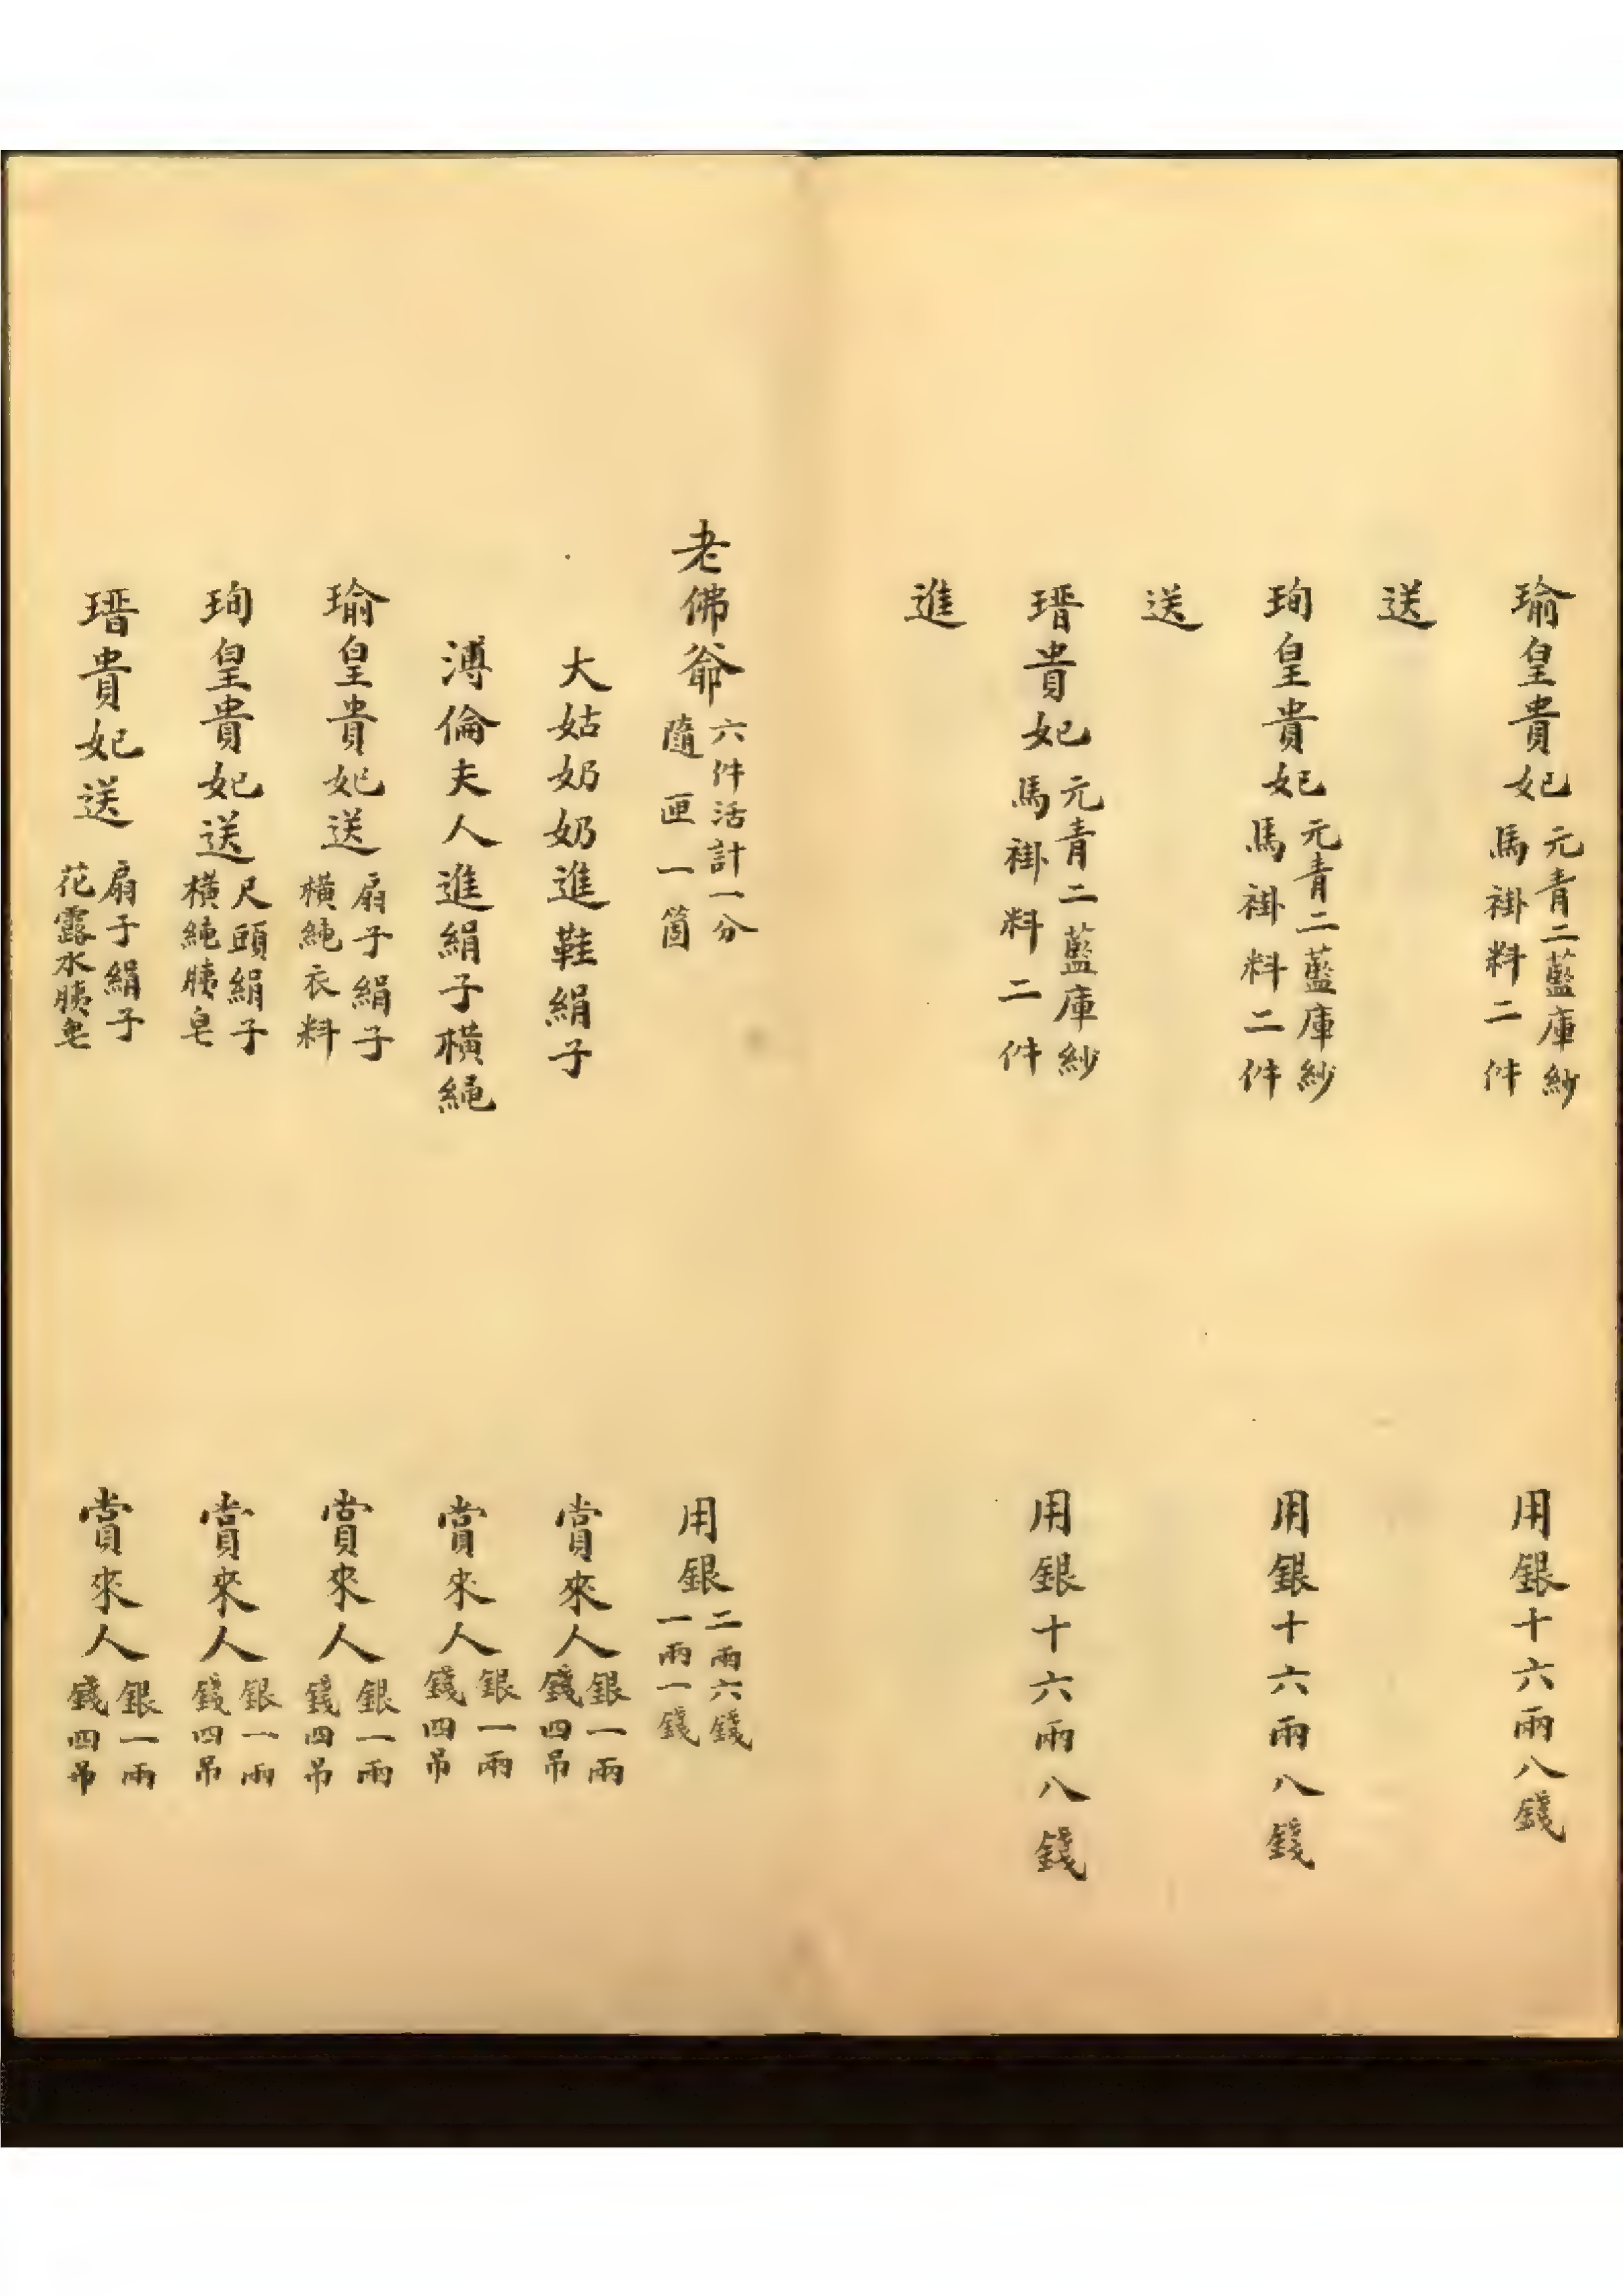 瑜皇貴妃元青二藍庫紗馬褂料二件 用銀十六兩八錢
送
珣皇貴妃元青二藍庫紗馬褂料二件 用銀十六兩八錢
送
瑨貴妃元青二藍庫紗馬褂料二件 用銀十六兩八錢
進
老佛爺六件活計一分隨匣一箇 用銀二兩六錢一兩一錢
大姑奶奶進鞋絹子 賞來人銀一兩錢四吊
溥倫夫人進絹子橫繩 賞來人銀一兩錢四吊
瑜皇貴妃送扇子絹子橫繩衣料 賞來人銀一兩錢四吊
珣皇貴妃送尺頭絹子橫繩胰皂 賞來人銀一兩錢四吊
瑨貴妃送扇子絹子花露水胰皂 賞來人銀一兩錢四吊